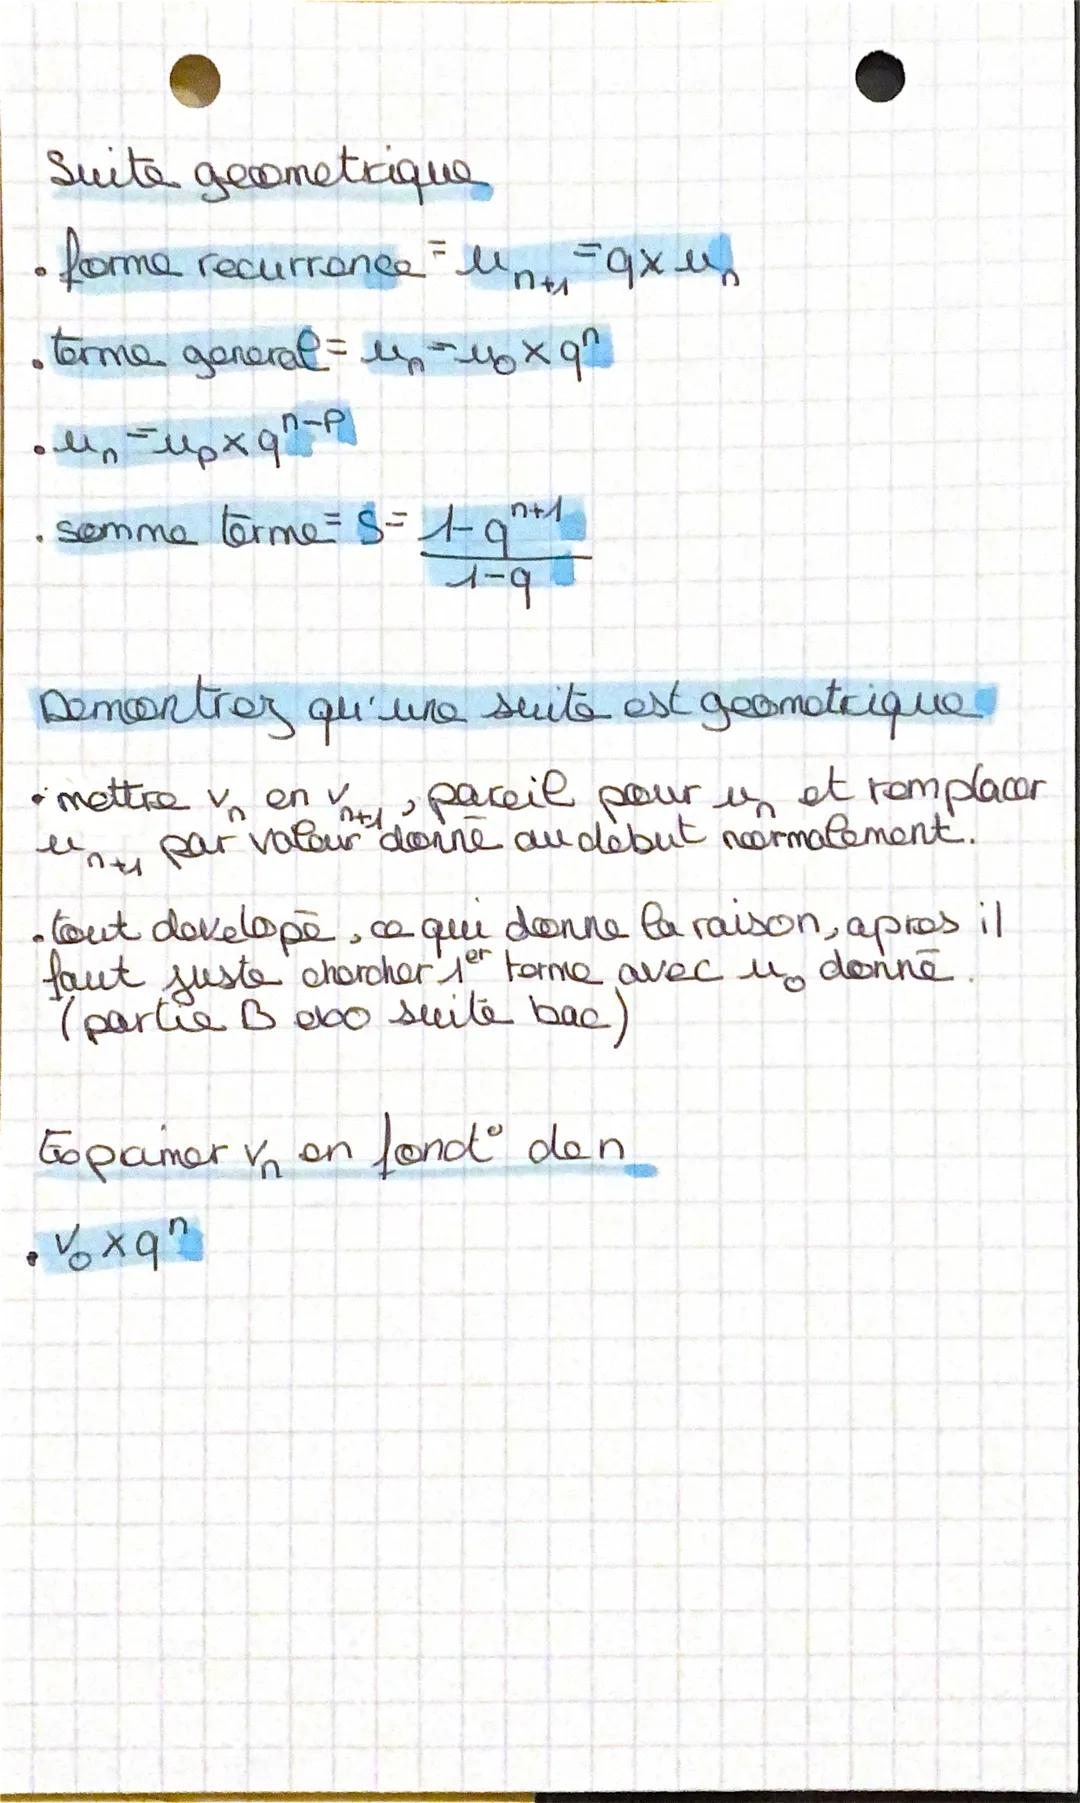 Suite geometrique
• forme recurrence = u_{n+1} = q × u_n
• terme general = u_n = u_0 × q^n
• u_n = u_p × q^{n-p}
• somme terme = S = \frac{1-q^{n+1}}{1-q}
Demontrez qu'une suite est geometrique
• mettre v_n en v_{n+1}, pareil pour u_n et remplacer
u_{n+1} par valeur donné au debut normalement.
• tout developé, ce qui donne la raison, apres il
faut juste chercher 1er terme avec u_0 donné.
(partie B exo suite bac)
Exprimer v_n en fonct° de n
• v_0 × q^n